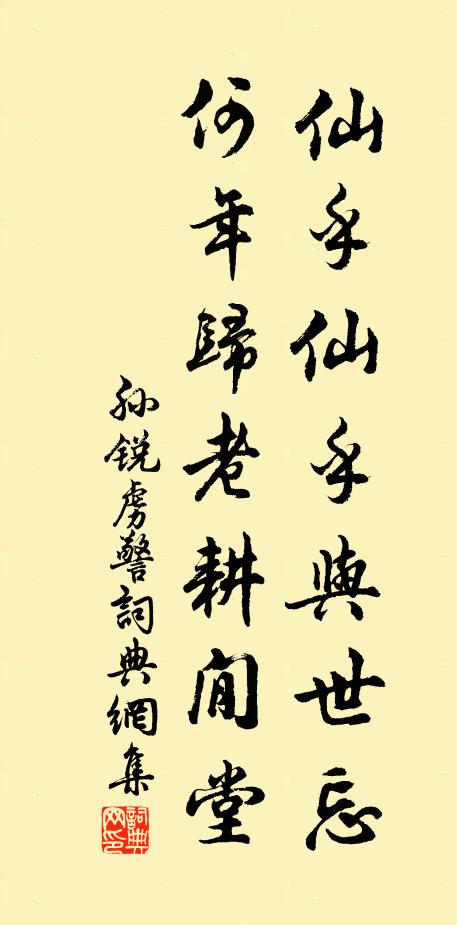 仙乎仙乎與世忘
何年歸老耕閒堂
孫銳虜警詞典網集
詞典網印